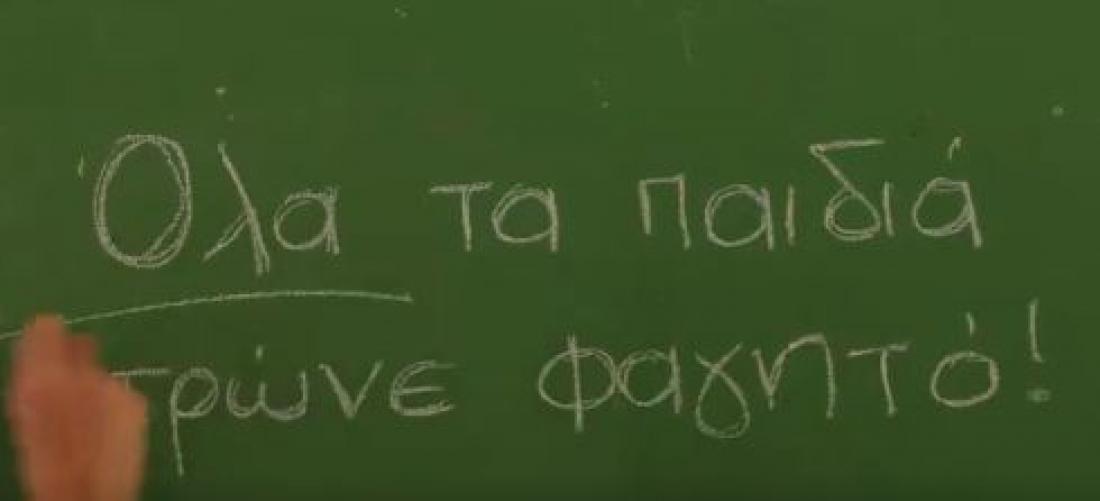 Όλα τα παιδιά
τρώνε φαγητό!